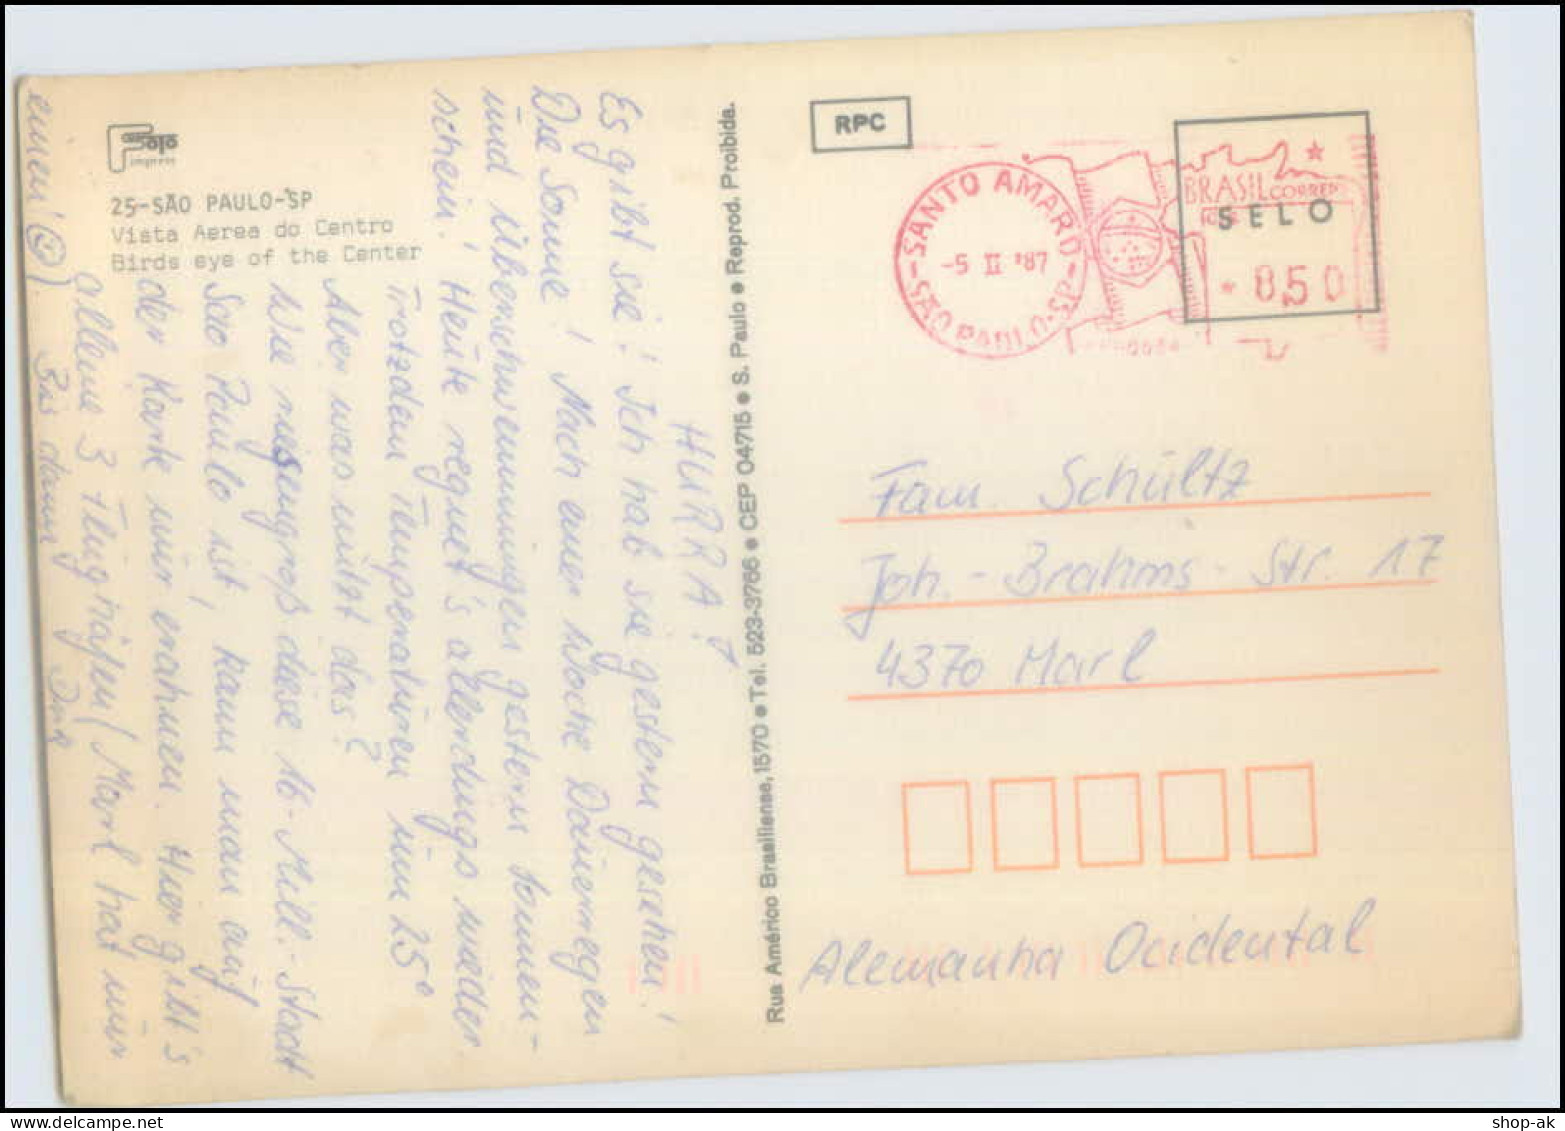 HURRA!
Es gibt sie! Ich hab sie gestern gesehen!
Die Sonne! Nach einer Woche Dauerregen
und Überschwemmungen gestern Sonnen-
schein! Heute regnet's allerdings wieder
Trotzdem Temperaturen um 25°
Aber was nützt das?
Wie riesengroß diese 16-Mill.-Stadt
Sao Paulo ist, kann man auf
der Karte nur erahnen. Hier gibt's
alleine 3 Flughäfen (Marl hat nur
einen!☺). Bis dann
foto
impress
25-SÃO PAULO-SP
Vista Aerea do Centro
Birds eye of the Center
Rua Américo Brasiliense, 1570 • Tel. 523-3766 • CEP 04715 • S. Paulo • Reprod. Proibida.
RPC
SANTO AMARO
-5 II '87
SÃO PAULO-SP
BRASIL CORREIO
SELO
* 8,50
Fam. Schültz
Joh.-Brahms-Str. 17
4370 Marl
Alemanha Ocidental
shop-ak